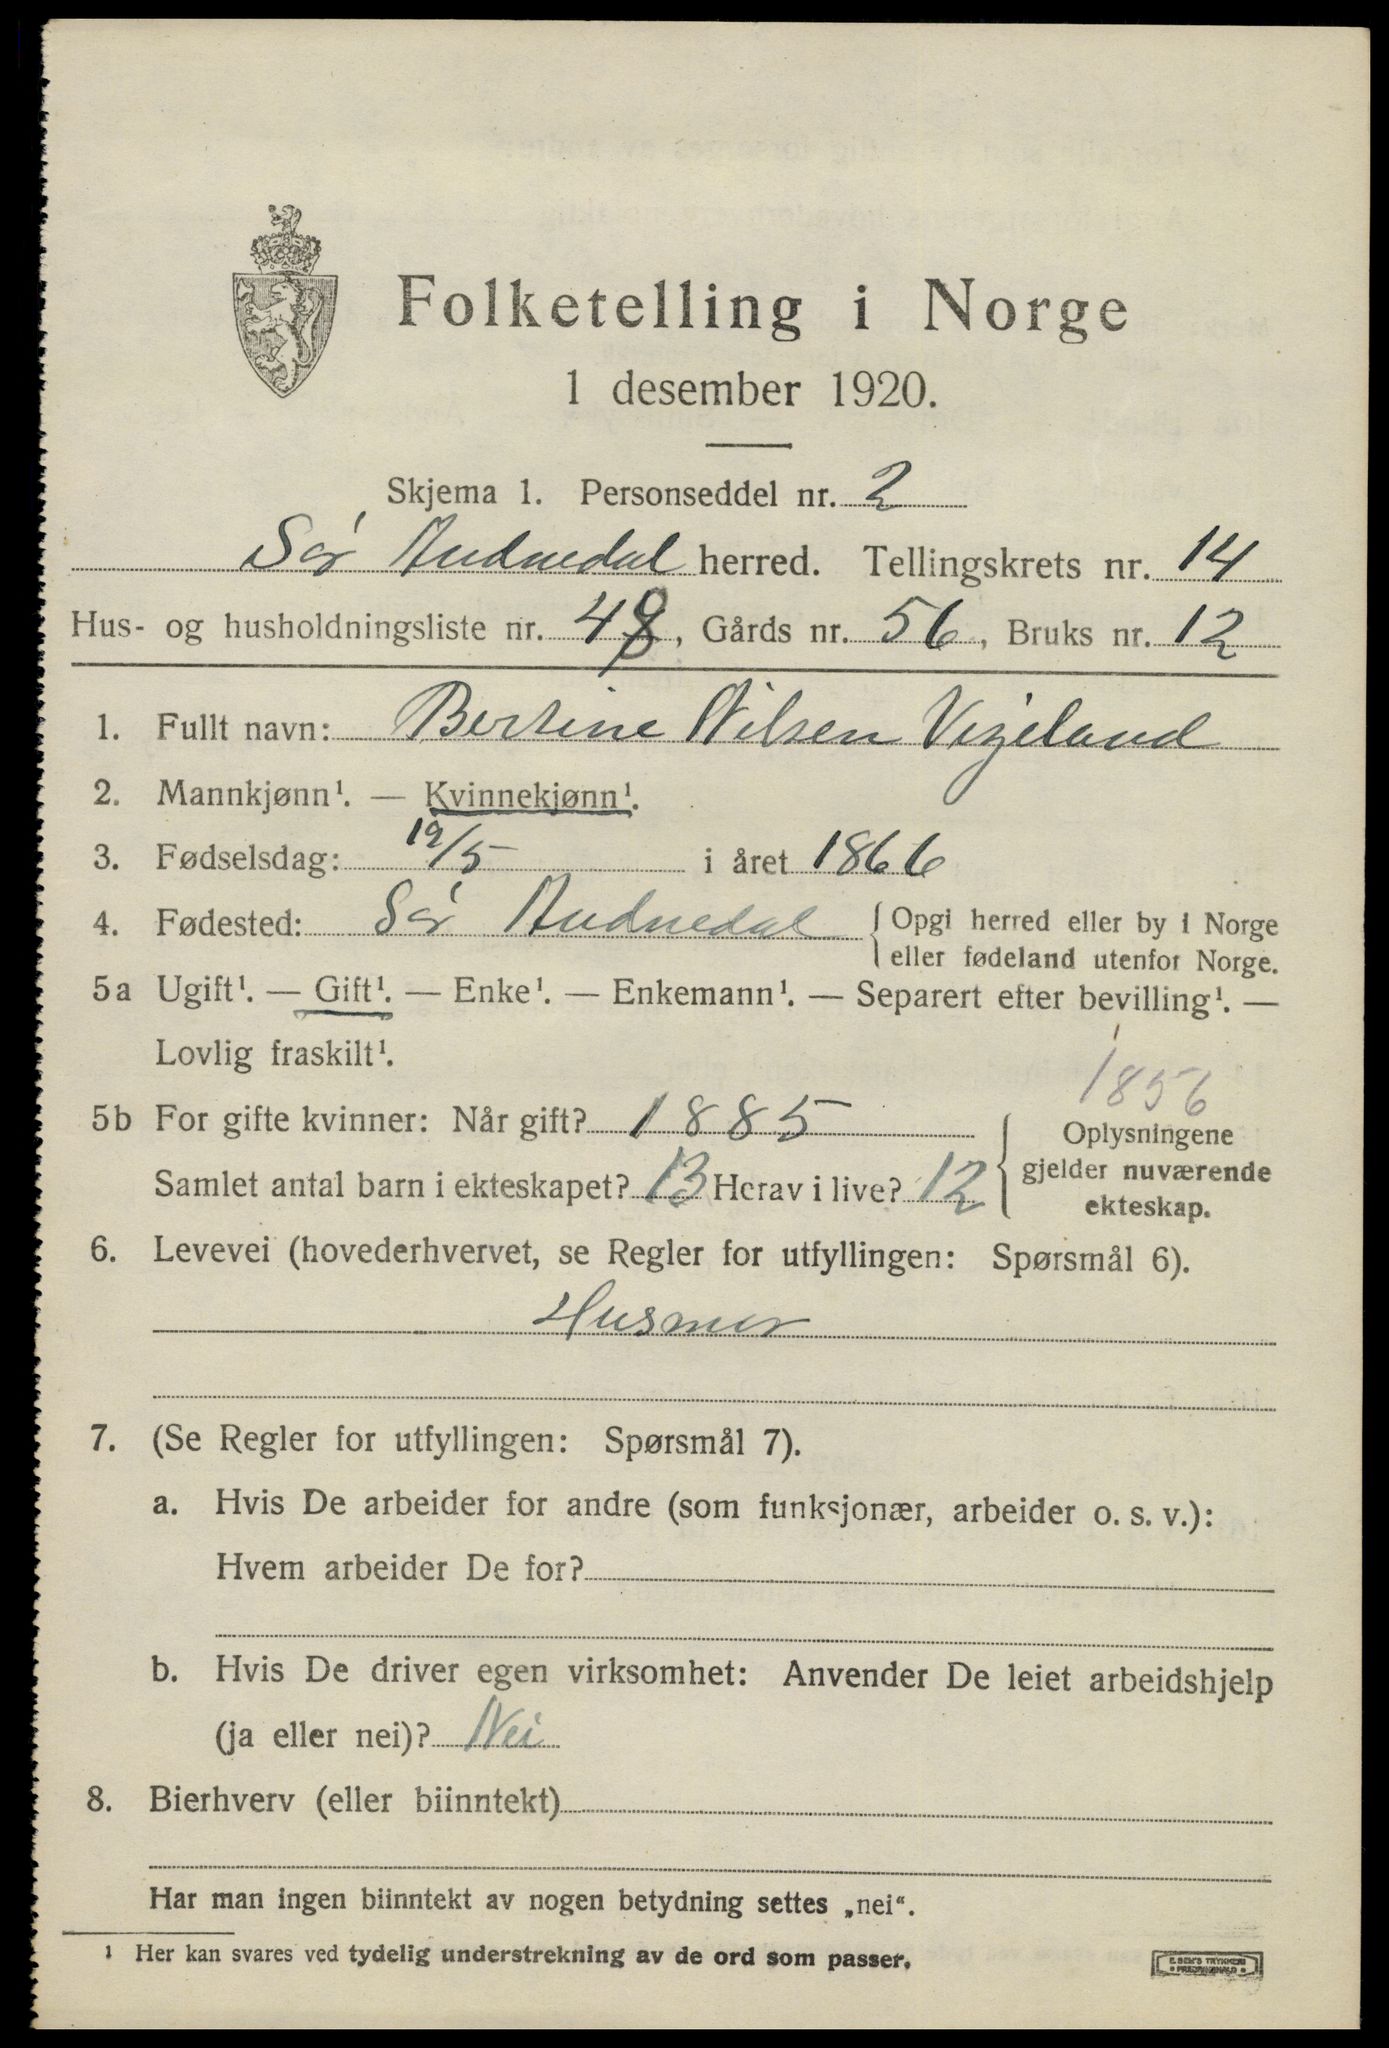 Folketelling i Norge
1 desember 1920.
Skjema 1. Personseddel nr. 2
Sør Audnedal herred. Tellingskrets nr. 14
Hus- og husholdningsliste nr. 49, Gårds nr. 56, Bruks nr. 12
1. Fullt navn: Bertine Nilsen Vigeland
2. Mannkjønn¹. — Kvinnekjønn¹.
3. Fødselsdag: 19/5 i året 1866
4. Fødested: Sør Audnedal { Opgi herred eller by i Norge
eller fødeland utenfor Norge.
5a Ugift¹. — Gift¹. — Enke¹. — Enkemann¹. — Separert efter bevilling¹. —
Lovlig fraskilt¹.
1856
5b For gifte kvinner: Når gift? 1885
Samlet antal barn i ekteskapet? 13 Herav i live? 12
{ Oplysningene
gjelder nuværende
ekteskap.
6. Levevei (hovederhvervet, se Regler for utfyllingen: Spørsmål 6).
Husmor
7. (Se Regler for utfyllingen: Spørsmål 7).
a. Hvis De arbeider for andre (som funksjonær, arbeider o. s. v.):
Hvem arbeider De for?
b. Hvis De driver egen virksomhet: Anvender De leiet arbeidshjelp
(ja eller nei)? Nei
8. Bierhverv (eller biinntekt)
Har man ingen biinntekt av nogen betydning settes „nei“.
1 Her kan svares ved tydelig understrekning av de ord som passer.
E. SEM'S TRYKKERI
• FREDRIKSHALD •